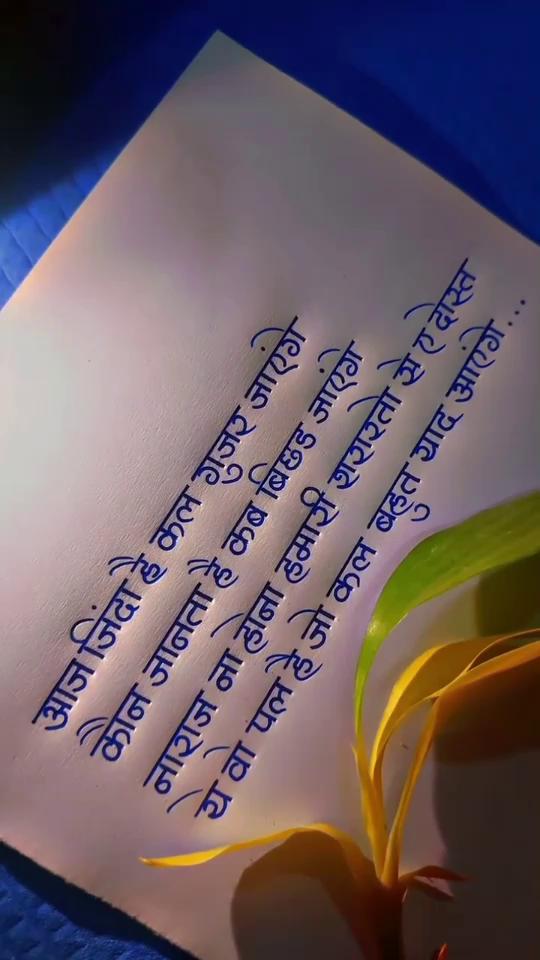 आज जिंदा है कल गुजर जाएंगे
कौन जानता है कब बिछड जाएंगे
नाराज ना होना हमारी शरारतों से ए दोस्त
ये वो पल है जो कल बहुत याद आएंगे...